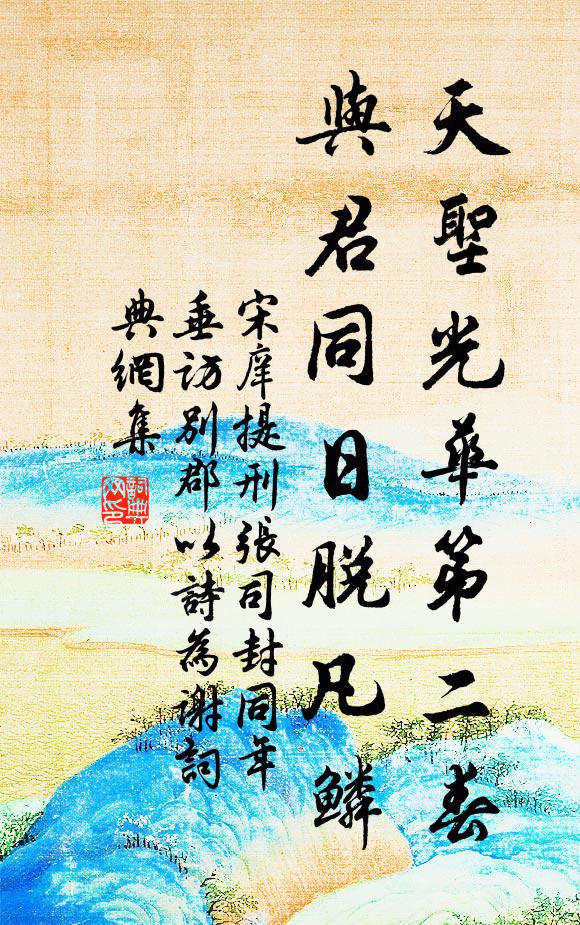 天聖光華第二春
與君同日脫凡鱗
宋庠提刑張司封同年
垂訪別郡以詩為謝詞
典網集